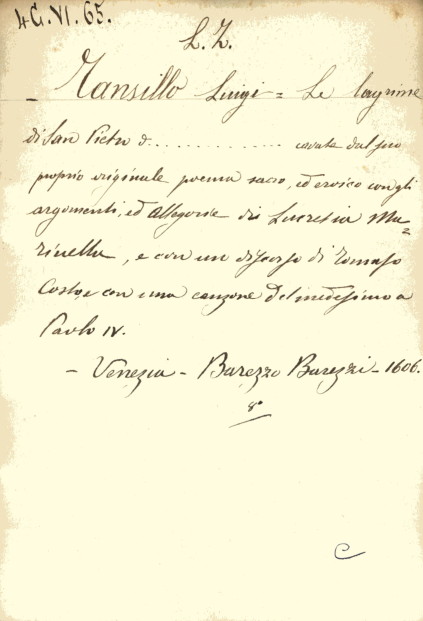 4G.VI.65.
L.Z.
- Tansillo Luigi = Le lagrime
di San Pietro d. . . . . . . . . . . . . . cavate dal suo
proprio originale poema sacro, ed eroico con gli
argomenti, ed Allegorie di Lucretia Ma=
rinella, e con un discorso di Tomaso
Costo, e con una canzone del medesimo a
Paolo IV.
- Venezia - Barezzo Barezzi - 1606.
8°
C